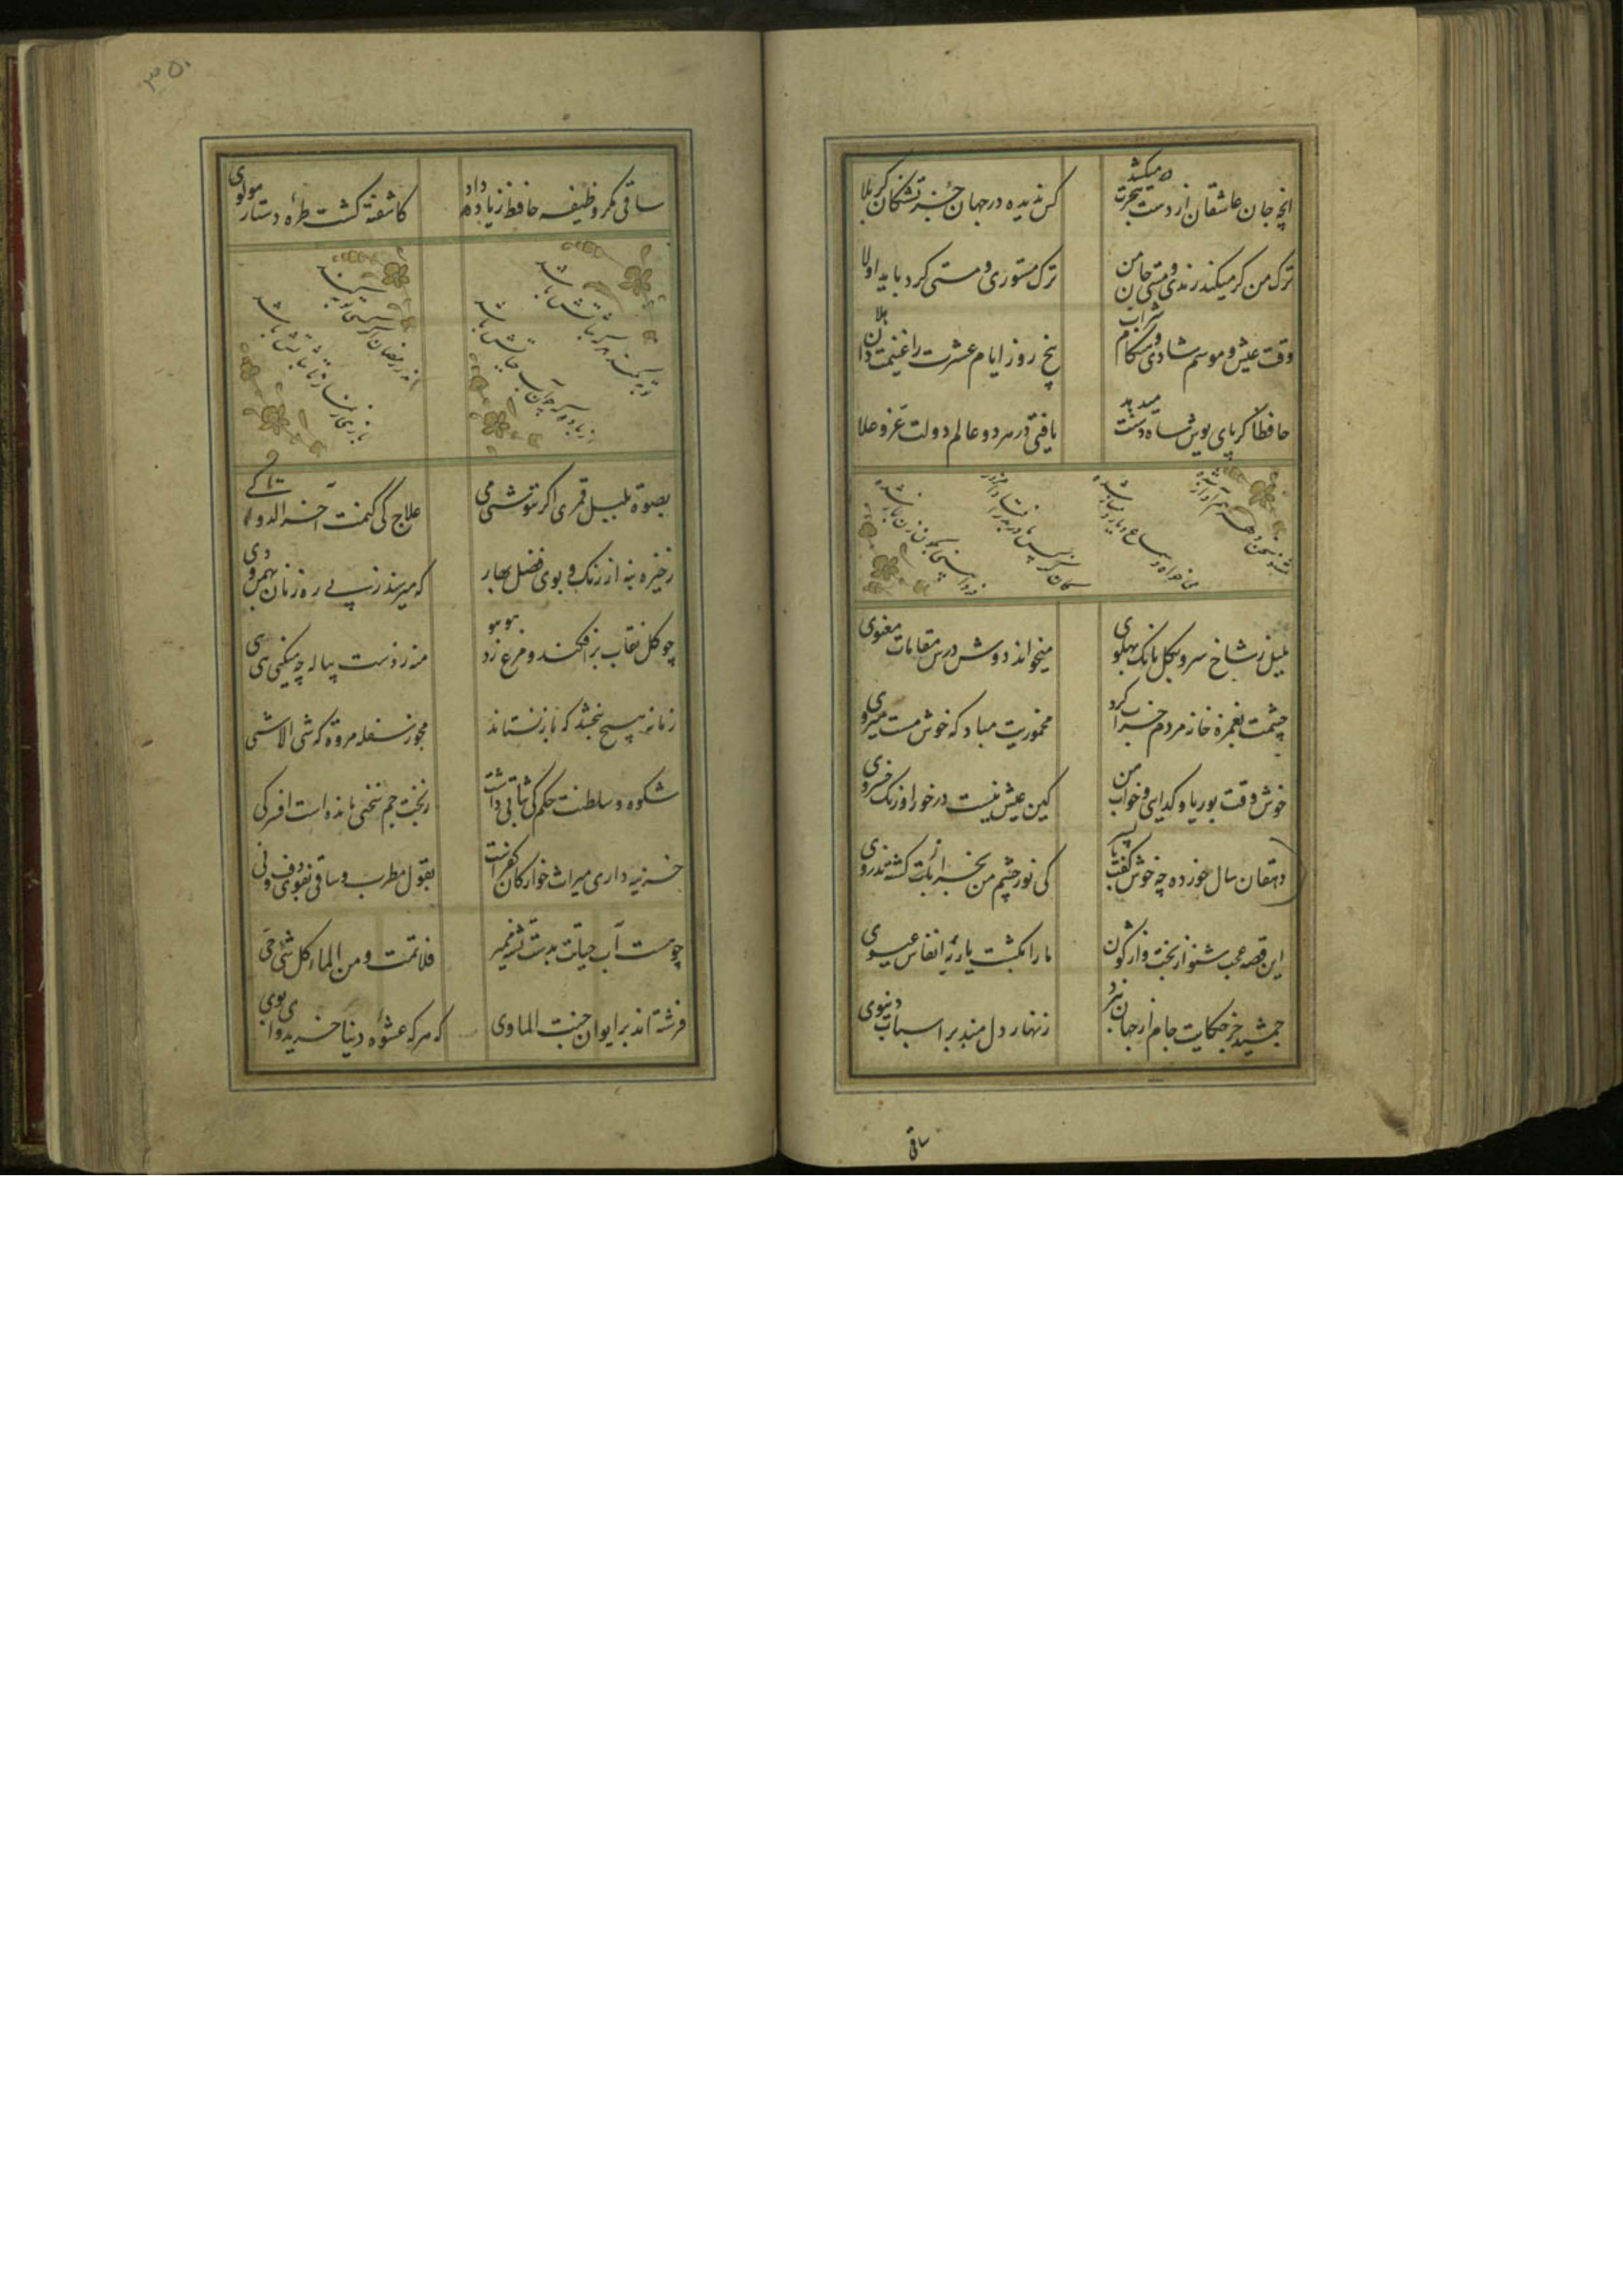 انچه جان عاشقان از دست هجرت میکشد
کس ندیده در جهان جز تشنکان کربلا
ترک من کر میکند رندی و مستی جان من
ترک مستوری و مستی کرد باید اولا
وقت عیش و موسم شادی و هنکام شراب
پنج روز ایام عشرت را غنیمت دان هلا
حافظا کر پای بوس شاه دستت میدهد
یافتی در هر دو عالم دولت عز و علا
بلبل ز شاخ سرو بکلبانک پهلوی
میخواند دوش درس مقامات معنوی
چشمت بغمزه خانه مردم خراب کرد
مخموریت مباد که خوش مست میروی
خوش وقت بوریا و کدایی و خواب من
کین عیش نیست در خور اورنک خسروی
دهقان سال خورده چه خوش کفت با پسر
کی نور چشم من بجز از کشته ندروی
این قصه عجب شنو از بخت واژکون
ما را بکشت یار به انفاس عیسوی
جمشید جز حکایت جام از جهان نبرد
زنهار دل مبند بر اسباب دنیوی
ساقی
۳۵۰
ساقی مکر وظیفه حافظ زیاده داد
کاشفته کشت طره دستار مولوی
بصوة بلبل قمری اکر ننوشی می
علاج کی کنمت آخر الدواء الکی
ذخیره بنه از رنک و بوی فصل بهار
که میرسند ز پی ره زنان بهمن و دی
چو کل نقاب برافکند و مرغ زد هوهو
منه ز دست پیاله چه میکنی هی هی
زمانه هیچ نبخشد که باز نستاند
مجو ز سفله مروة که شی الا شی
شکوه و سلطنت حکم کی ثباتی داشت
ز تخت جم سخنی مانده است افسر کی
خزینه داری میراث خوارکان کفر است
بقول مطرب و ساقی بفتوی دف و نی
چو هست آب حیاتت بدست تشنه ممیر
فلا تمت و من الماء کل شئ حی
فرشته اند بر ایوان جنت الماوی
که هر که عشوه دنیا خرید وای بوی